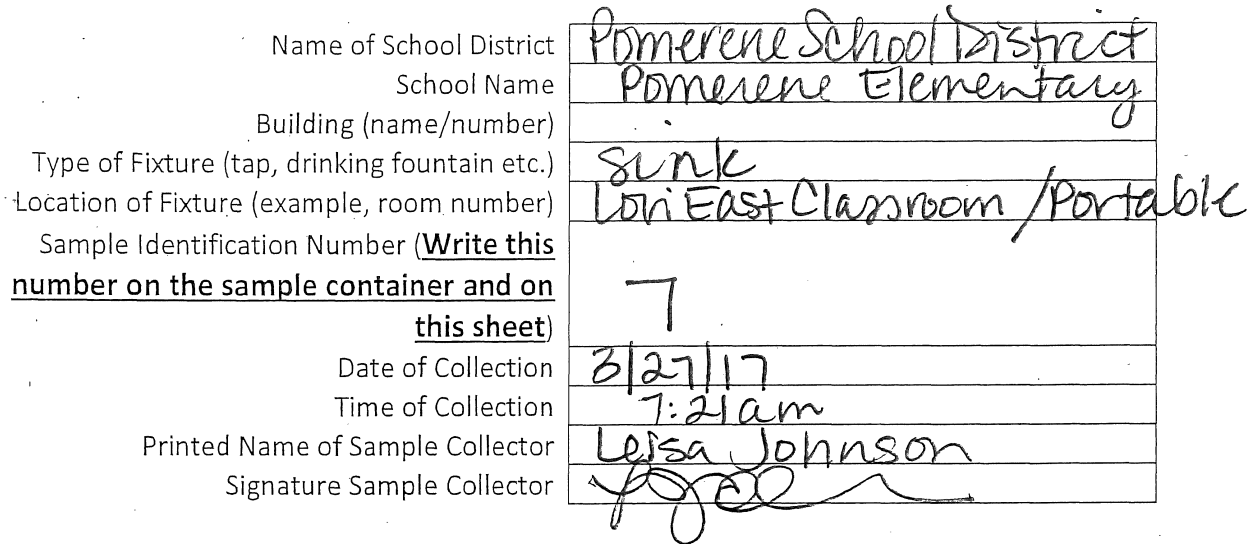 Name of School District Pomerene School District
School Name Pomerene Elementary
Building (name/number)
Type of Fixture (tap, drinking fountain etc.) Sink
Location of Fixture (example, room number) Lori East Classroom /Portable
Sample Identification Number (Write this
number on the sample container and on
this sheet) 7
Date of Collection 3/27/17
Time of Collection 7:21am
Printed Name of Sample Collector Leisa Johnson
Signature Sample Collector